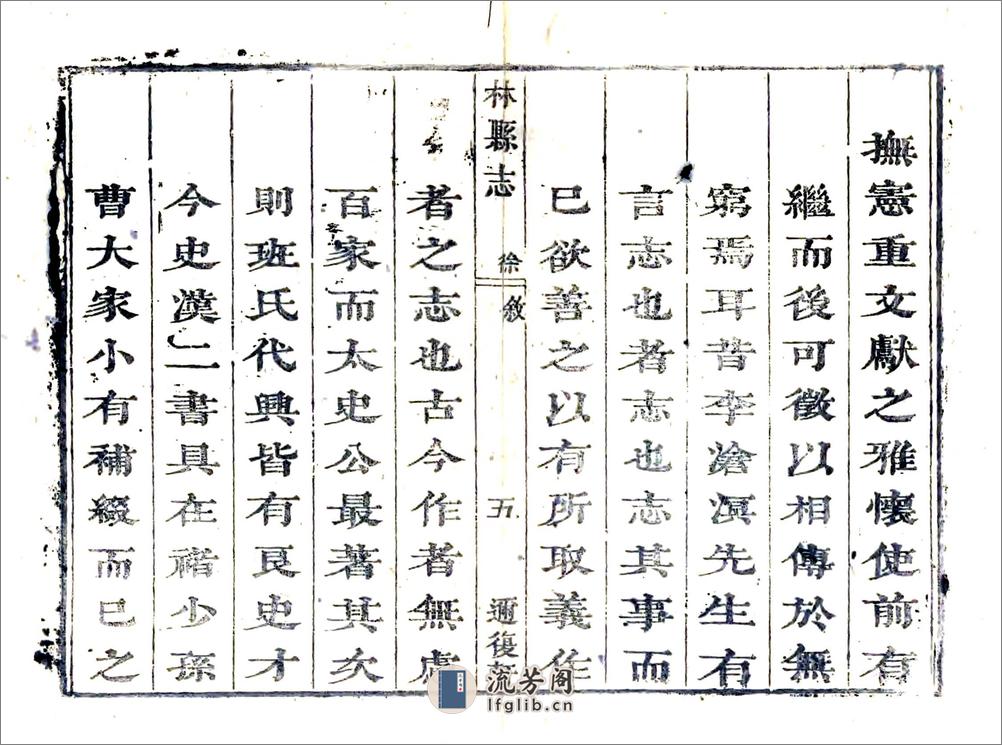 撫憲重文獻之雅懷使前有
繼而後可徵以相傳於無
窮焉耳昔李滄溟先生有
言志也者志也志其事而
已欲善之以有所取義作
林縣志 徐敘 五 復
者之志也古今作者無慮
百家而太史公最著其次
則班氏代興皆有良史才
今史漢二書具在褚少孫
曹大家小有補綴而已之
流芳阁
lfglib.cn